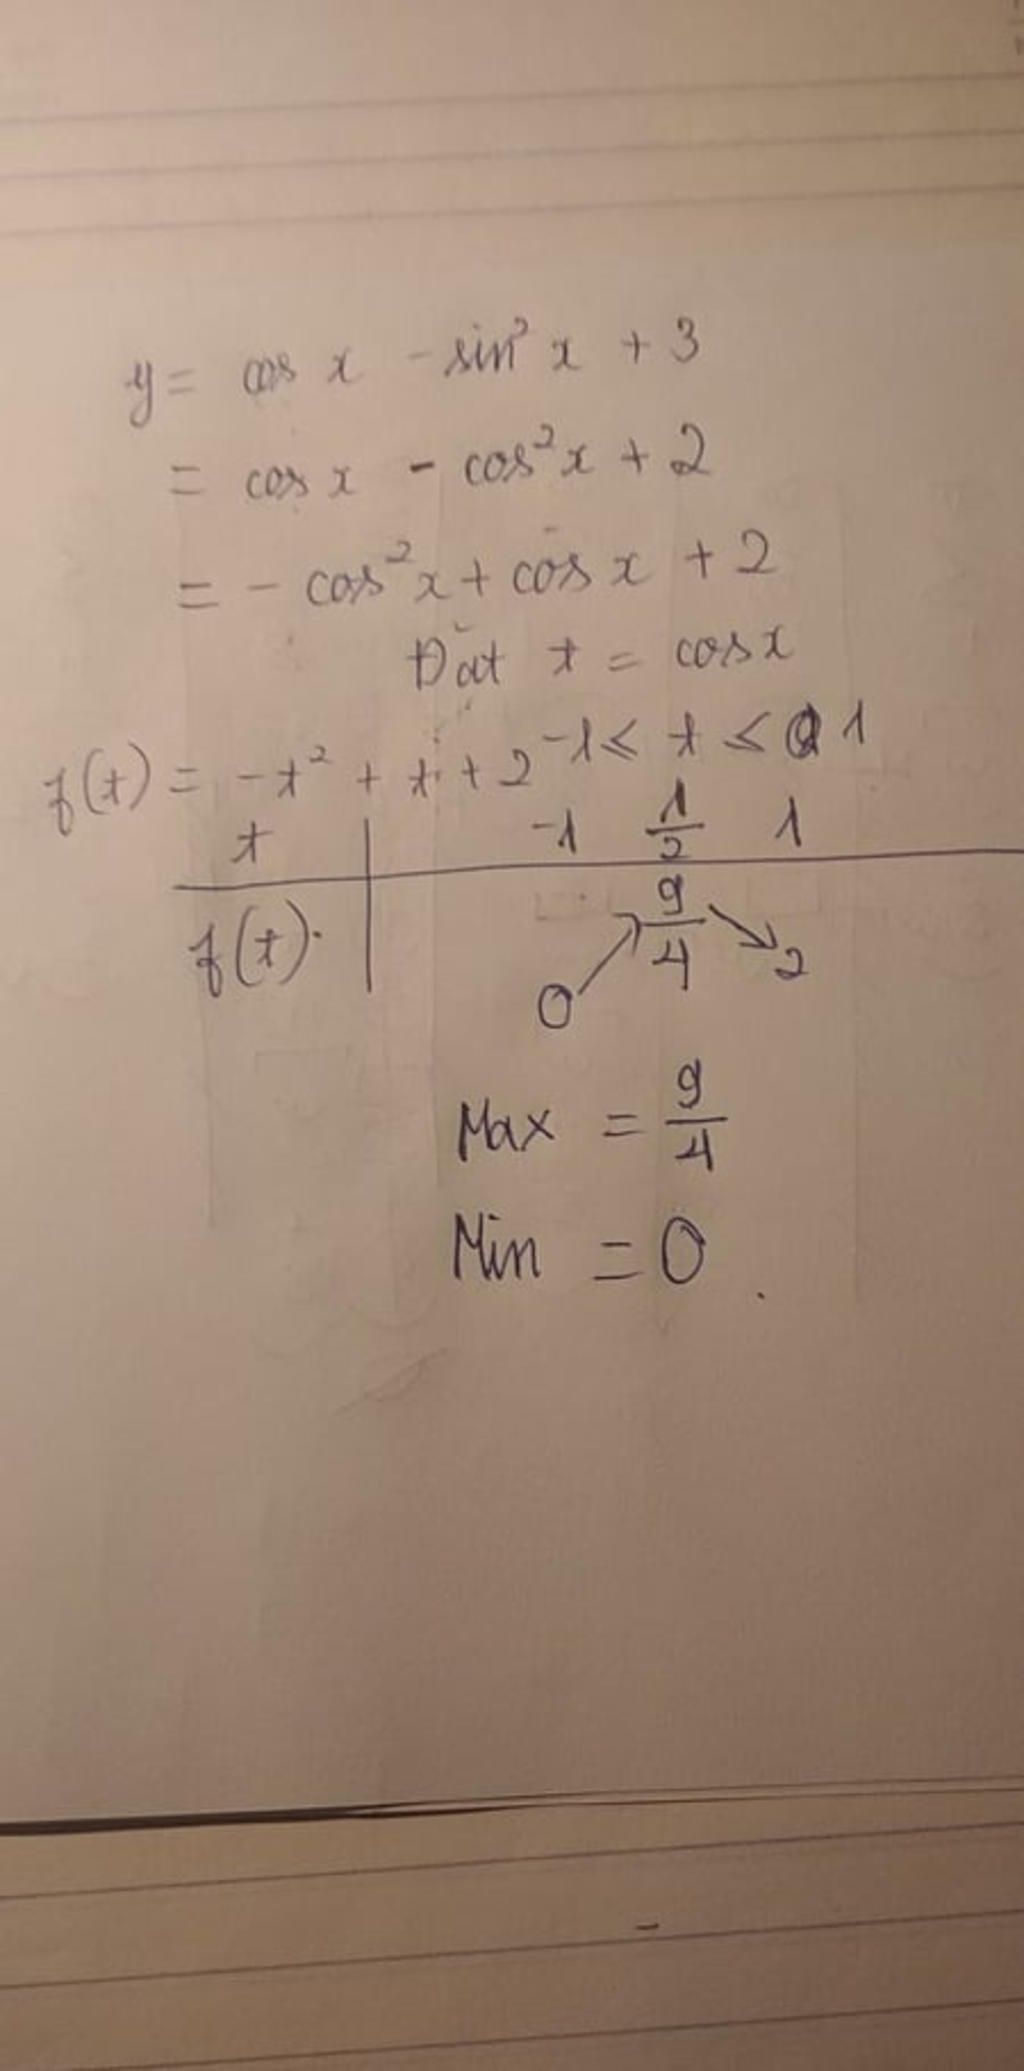 y = cos x - sin² x + 3
= cos x - cos²x + 2
= - cos²x + cos x + 2
Đặt t = cosx
-1 ≤ t ≤ 1
f(t) = -t² + t + 2
t -1 1/2 1
f(t) 0 ↗ 9/4 ↘ 2
Max = 9/4
Min = 0